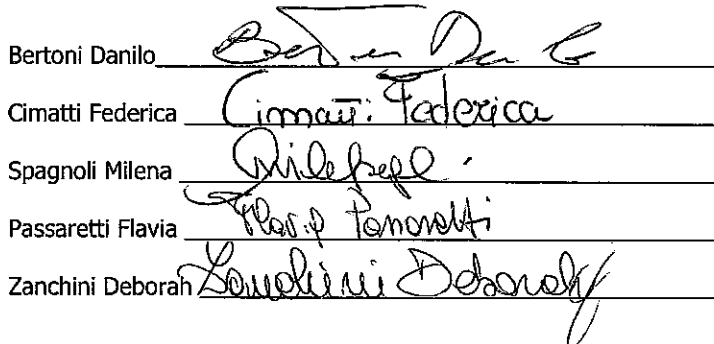 Bertoni Danilo
Cimatti Federica Cimatti Federica
Spagnoli Milena
Passaretti Flavia Flavia Passaretti
Zanchini Deborah Zanchini Deborah